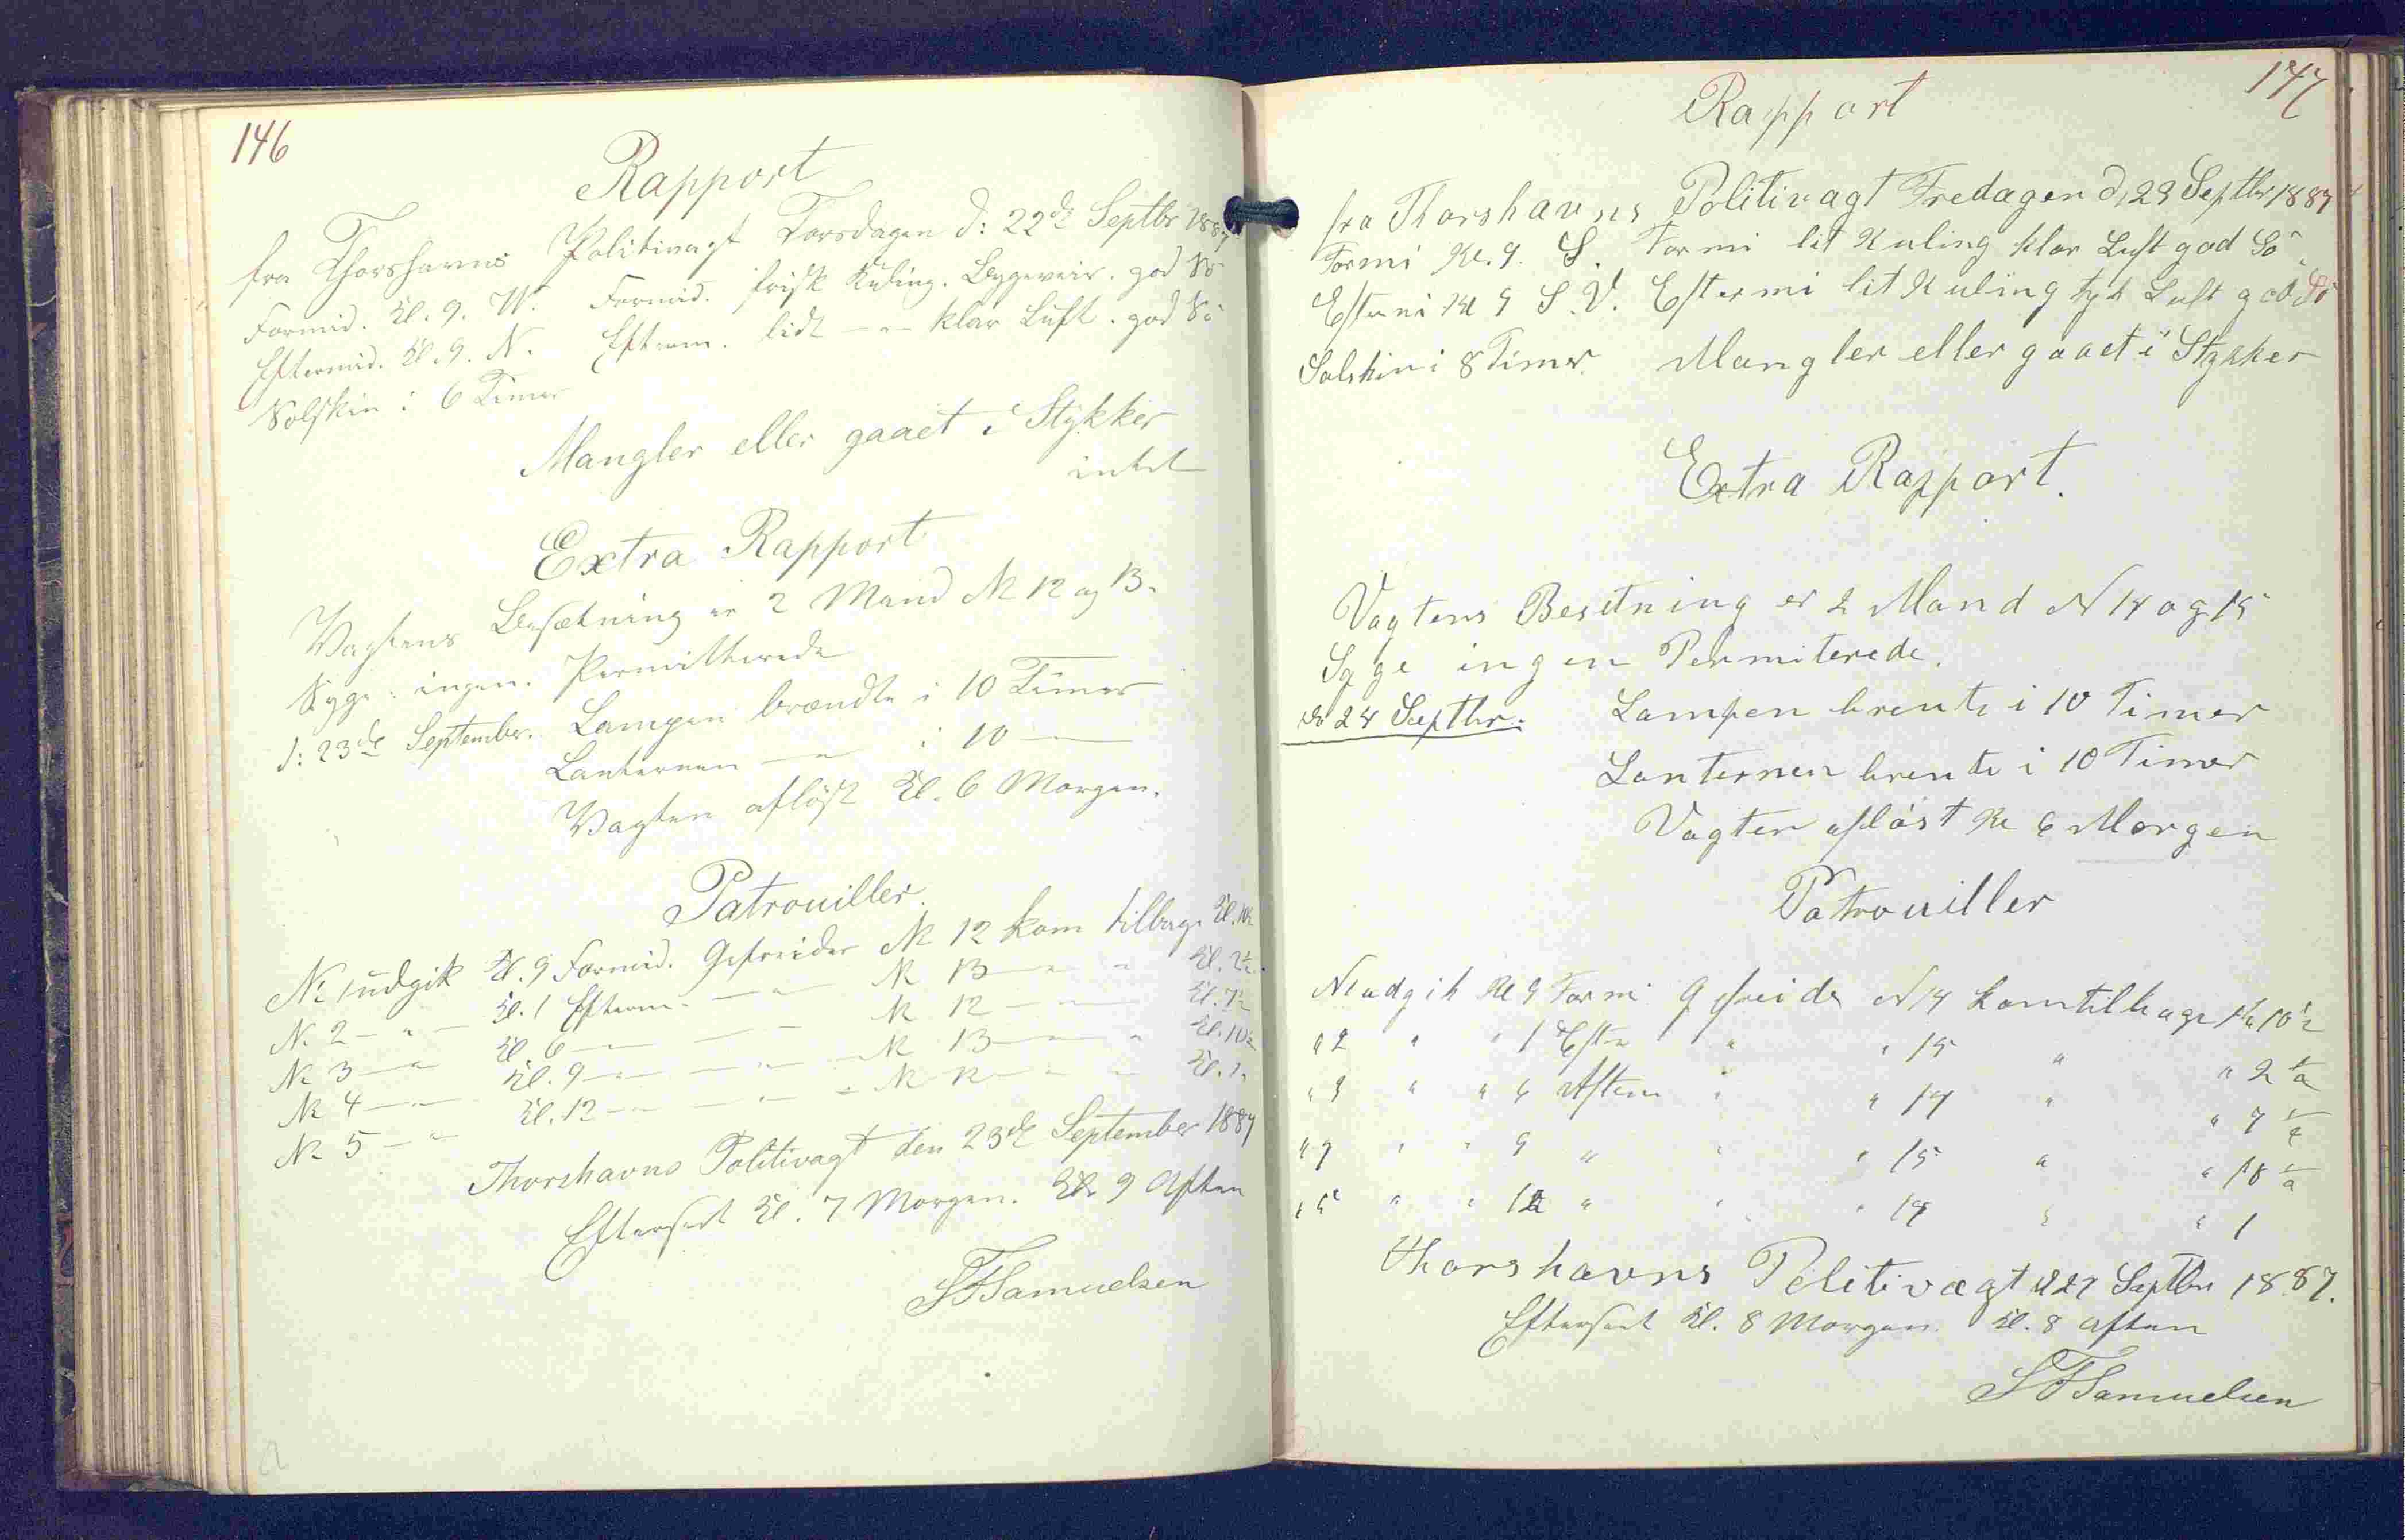 146
Rapport
fra Thorshavns Politivagt Torsdagen d: 22de Septbr 1887
Formid. Kl. 9. W. Formid. frisk Kuling. Bygeveir. god Sö
Eftermid. Kl. 9. N. Efterm. lidt — „ — klar Luft. god Sö
Solskin i 6 Timer
Mangler eller gaaet i Stykker
intet
Extra Rapport
Vagtens Besætning er 2 Mand № 12 og 13.
Syge: ingen. Permitterede
d: 23de September. Lampen brændte i 10 Timer
Lanternen — „ — i 10 —
Vagten aflöst Kl. 6 Morgen.
Patrouiller.
№ 1 udgik Kl. 9 Formid. Gefreider № 12 kom tilbage Kl. 10½
№ 2 — „ — Kl. 1 Efterm. — „ — № 13 — „ — „ Kl. 2½
№ 3 — „ Kl. 6 — „ — — № 12 — „ — Kl. 7½
№ 4 — „ — Kl. 9 — „ — — „ — № 13 — „ — „ Kl. 10½
№ 5 — „ Kl. 12 — „ — — „ — № 12 — „ — „ Kl. 1.
Thorshavns Politivagt den 23de September 1887
Efterseet Kl. 7 Morgen. Kl. 9 Aften
SFSamuelsen
147
Rapport
fra Thorshavns Politivagt Fredagen d. 23 Septbr 1887
Formi Kl. 9. S. Formi lit Kuling klar Luft god Sö
Eftermi Kl 9 S.V. Eftermi lit Kuling tyk Luft god Sö
Solskin i 8 Timer. Mangler eller gaaet i Stykker
Extra Rapport.
Vagtens Besetning er 2 Mand № 14 og 15
Syge ingen Permiterede.
d. 24 Septbr: Lampen brente i 10 Timer
Lanternen brente i 10 Timer
Vagten aflöst Kl 6 Morgen
Patrouiller
№ 1 udgik Kl 9 Formi Gefreider № 14 kom tilbage Kl 10½
„ 2 „ „ 1 Efter „ „ 15 „ „ 2½
„ 3 „ „ 6 Aften „ „ 14 „ „ 7½
„ 4 „ „ 9 „ „ „ 15 „ „ 10½
„ 5 „ „ 12 „ „ „ 14 „ „ 1
Thorshavns Politivagt d 24 Septbr 1887.
Efterseet Kl. 8 Morgen. Kl. 8 Aften
SFSamuelsen